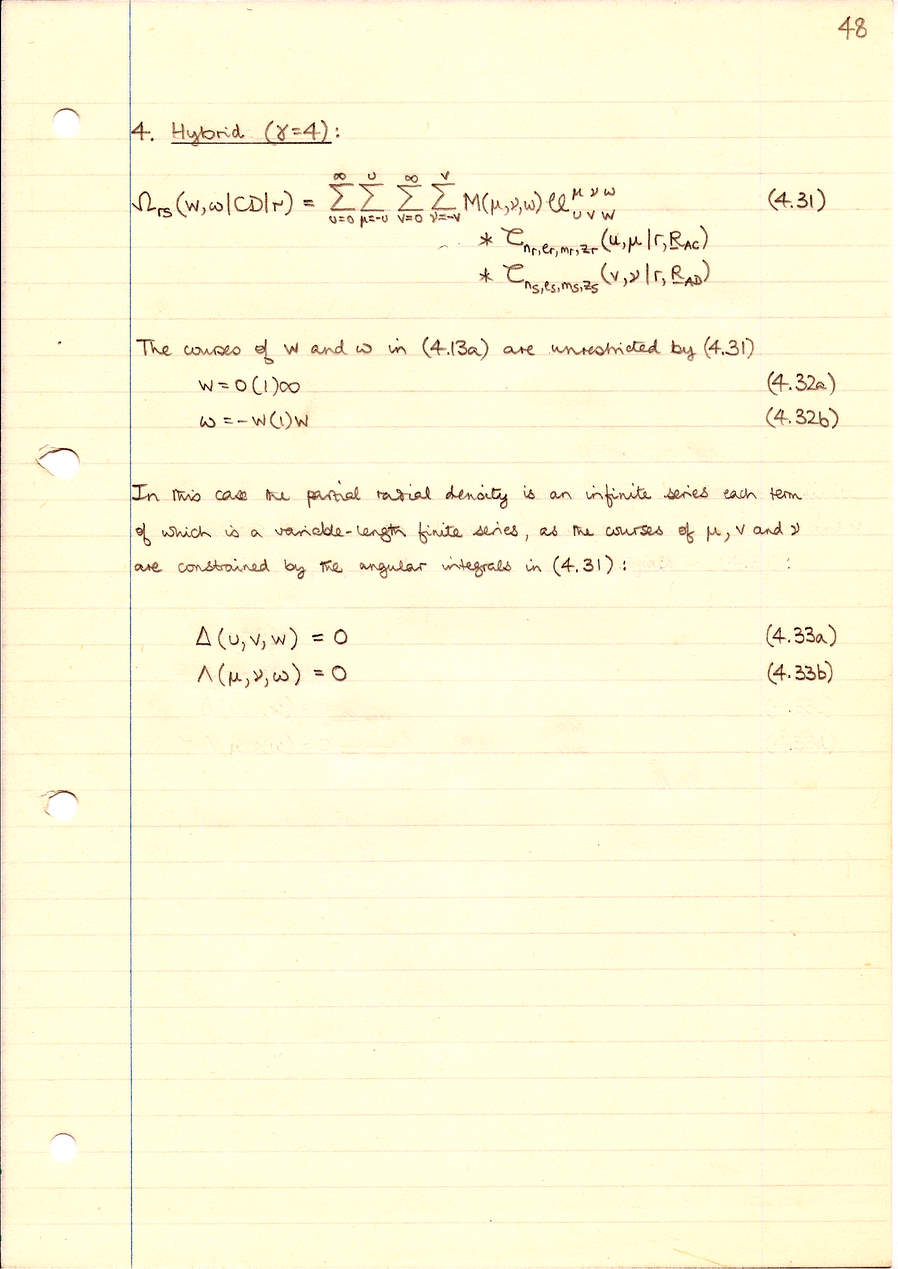 48
4. Hybrid (γ=4):
Ω_rs(w,ω|CD|r) = ∑_{u=0}^{∞} ∑_{μ=-u}^{u} ∑_{v=0}^{∞} ∑_{ν=-v}^{v} M(μ,ν,ω) 𝒰^{μ ν ω}_{u v w} (4.31)
* 𝒯_{n_r,l_r,m_r,z_r}(u,μ|r,R_AC)
* 𝒯_{n_s,l_s,m_s,z_s}(v,ν|r,R_AD)
The courses of w and ω in (4.13a) are unrestricted by (4.31)
w = 0(1)∞ (4.32a)
ω = -w(1)w (4.32b)
In this case the partial radial density is an infinite series each term
of which is a variable-length finite series, as the courses of μ, v and ν
are constrained by the angular integrals in (4.31):
Δ(u,v,w) = 0 (4.33a)
Λ(μ,ν,ω) = 0 (4.33b)